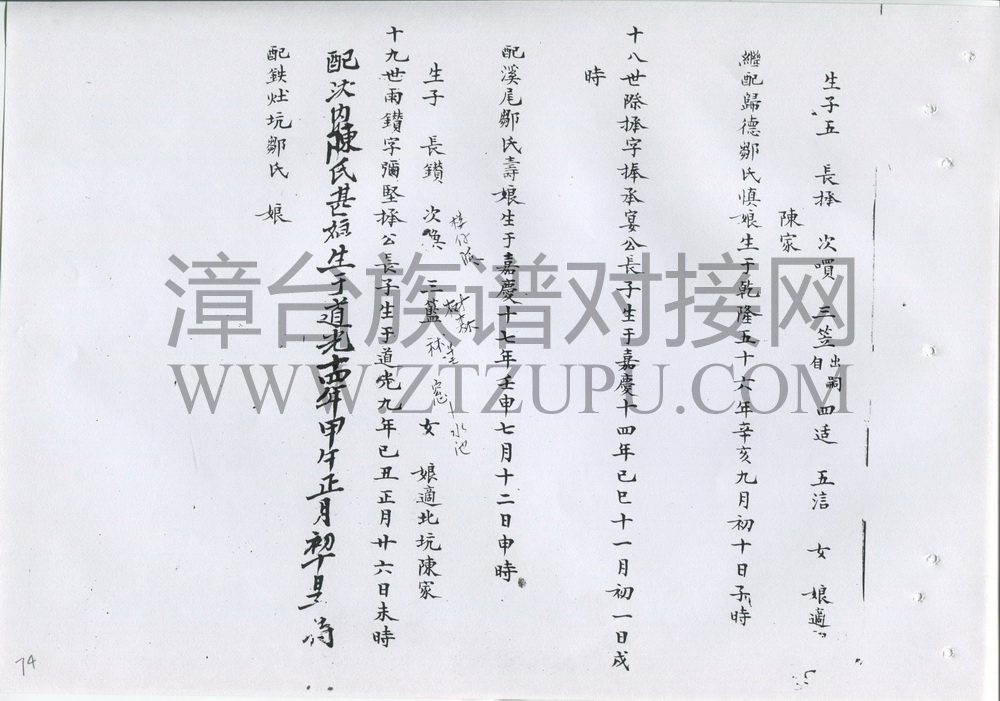 生子五 長捧 次嘪 三笠 出嗣自 四适 五㳩 女 娘適
陳家
繼配歸德鄒氏慎娘生于乾隆五十六年辛亥九月初十日子時
十八世際捧字捧承宴公長子生于嘉慶十四年己巳十一月初一日戌
時
配溪尾鄒氏壽娘生于嘉慶十七年壬申七月十二日申時
生子 長鑽 次喚 三藍 女 娘適北坑陳家
水池
十九世雨鑽字彌堅捧公長子生于道光九年己丑正月廿六日未時
配 內陳氏甚 生于道光十四年甲午正月初十 時
配鉄灶坑鄒氏 娘
74
漳台族谱对接网
WWW.ZTZUPU.COM